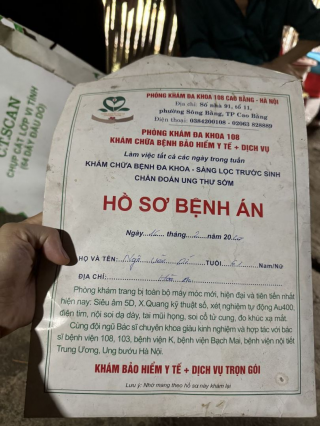 PHÒNG KHÁM ĐA KHOA 108 CAO BẰNG - HÀ NỘI
Địa chỉ: Số nhà 91, tổ 11,
phường Sông Bằng, TP Cao Bằng
PHÒNG KHÁM ĐA KHOA 108
KHÁM CHỮA BỆNH BẢO HIỂM Y TẾ + DỊCH VỤ
Làm việc tất cả các ngày trong tuần
KHÁM CHỮA BỆNH ĐA KHOA - SÀNG LỌC TRƯỚC SINH
CHẨN ĐOÁN UNG THƯ SỚM
HỒ SƠ BỆNH ÁN
Ngày tháng năm 20
HỌ VÀ TÊN: TUỔI: Nam/Nữ
ĐỊA CHỈ:
Phòng khám trang bị toàn bộ máy móc mới, hiện đại và tiên tiến nhất
hiện nay: Siêu âm 5D, X.Quang kỹ thuật số, xét nghiệm tự động Au400,
điện tim, nội soi dạ dày, tai mũi họng, soi cổ tử cung, đo khúc xạ mắt.
Cùng đội ngũ Bác sĩ chuyên khoa giàu kinh nghiệm và hợp tác với bác
sĩ bệnh viện 108, 103, bệnh viện K, bệnh viện Bạch Mai, bệnh viện nội tiết
Trung Ương, Ung bướu Hà Nội.
KHÁM BẢO HIỂM Y TẾ + DỊCH VỤ TRỌN GÓI
Lưu ý: Nhớ mang theo hồ sơ này khám lại
C.T.SCAN
CHỤP CẮT LỚP VI TÍNH